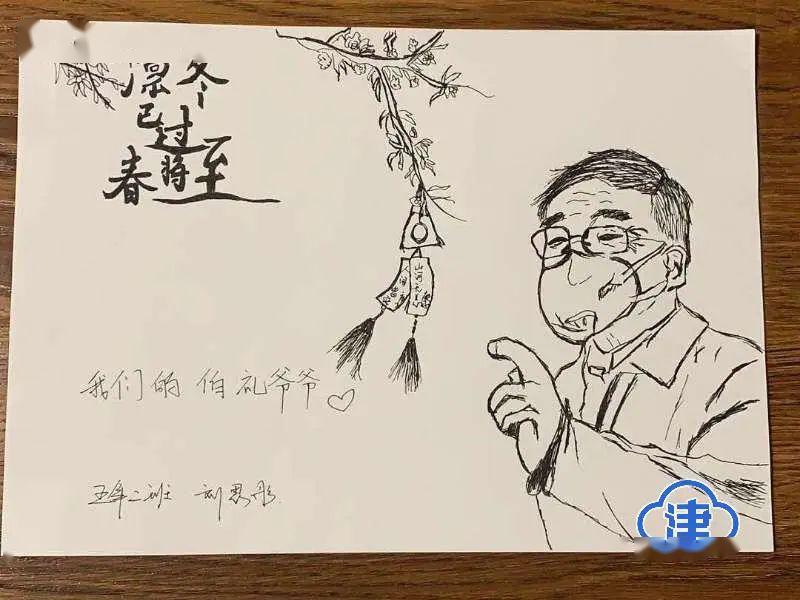 凛冬
已过
春将至
山河无恙
我们的 伯礼爷爷♡
五年二班 刘思彤
津